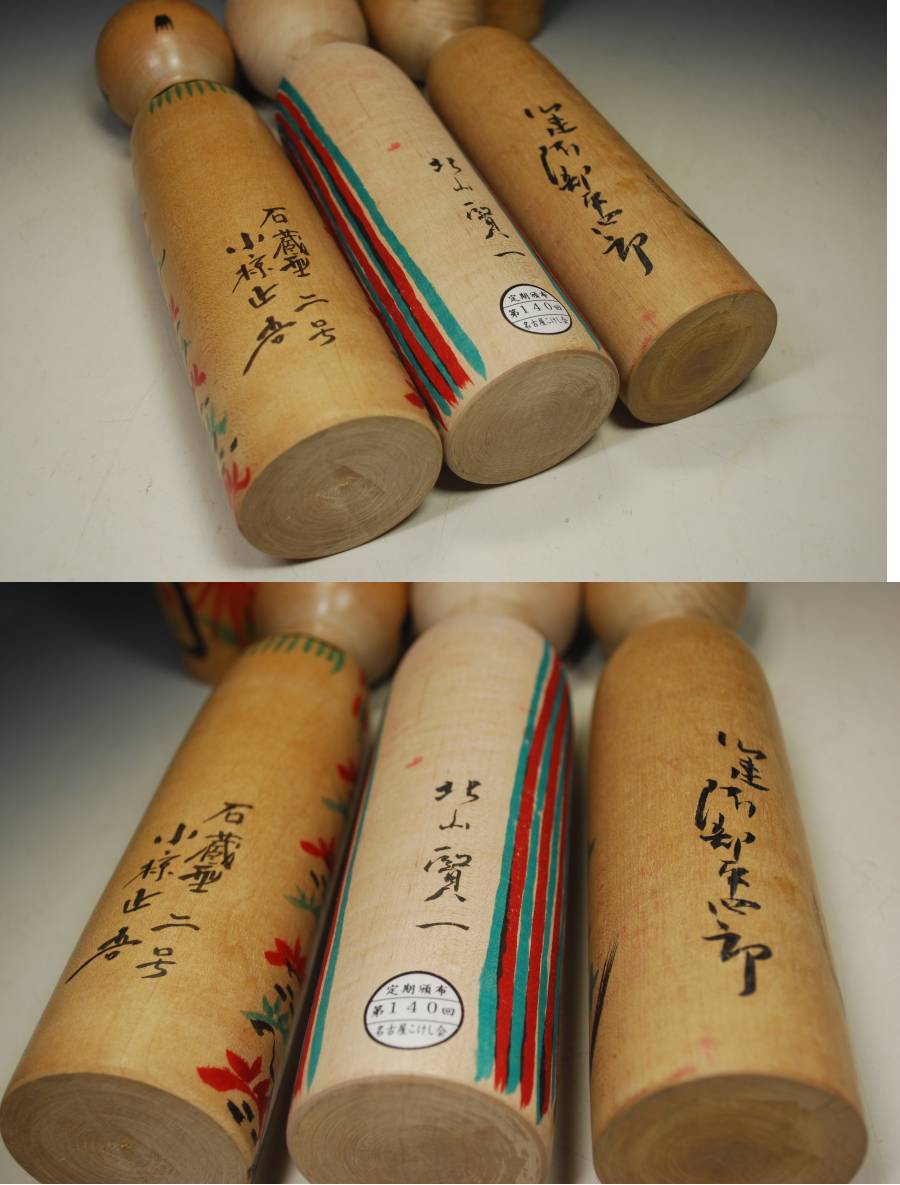 石蔵型 二号
小椋正吾
北山賢一
定期頒布
第140回
名古屋こけし会
石蔵型 二号
小椋正吾
北山賢一
定期頒布
第140回
名古屋こけし会